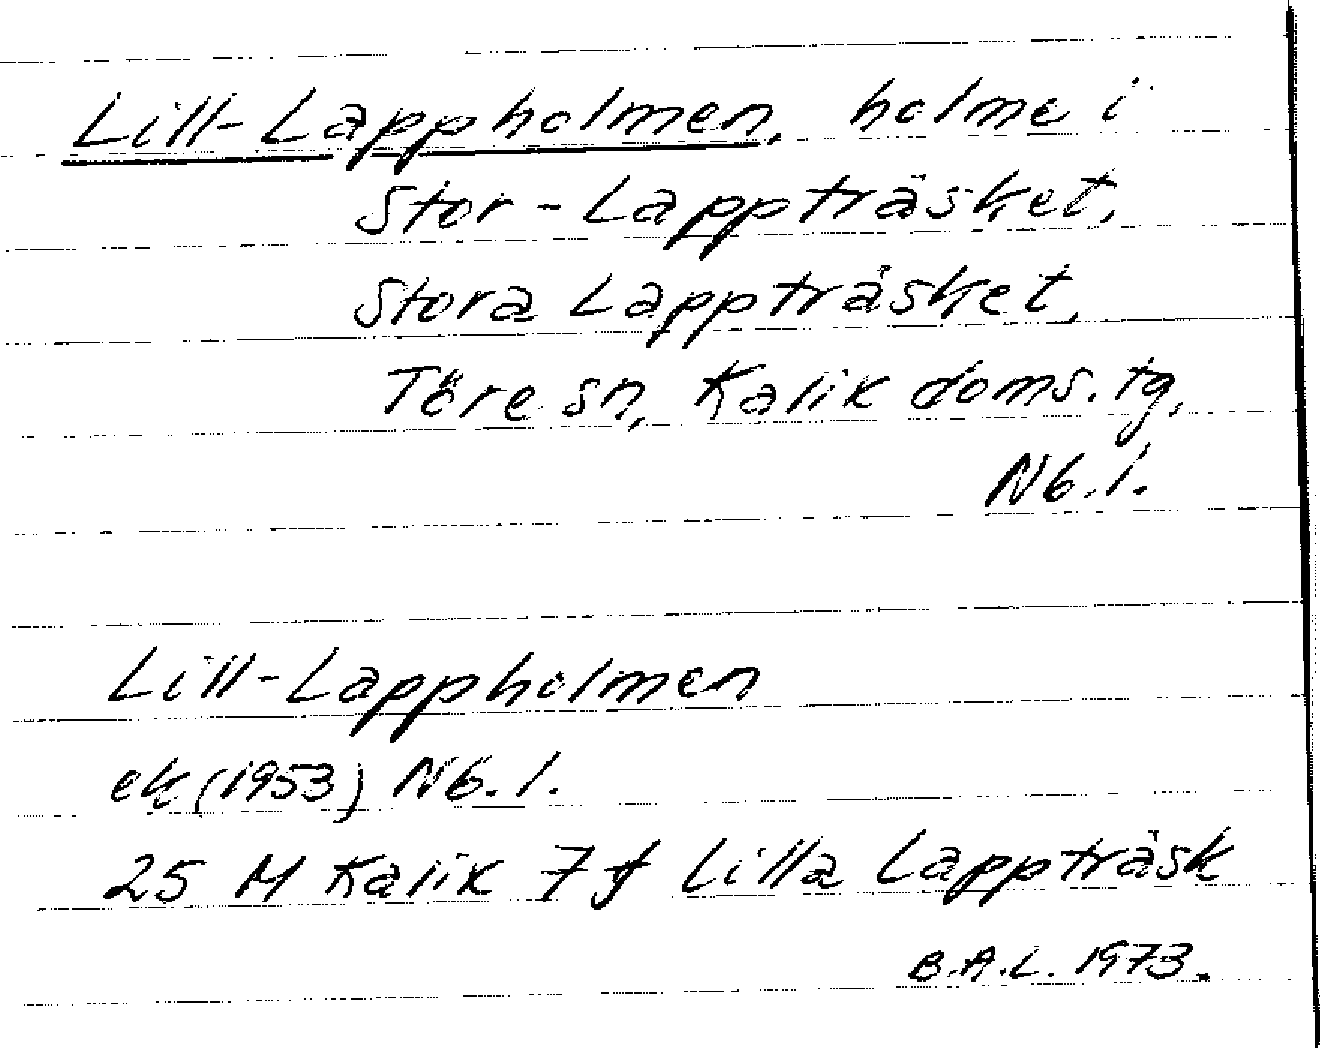 Lill-Lappholmen, holme i
Stor-Lappträsket,
Stora Lappträsket,
Töre sn, Kalix doms.tg,
Nb.l.
Lill-Lappholmen
ek (1953) Nb.l.
25 M Kalix 7 f Lilla Lappträsk
B.A.L. 1973.